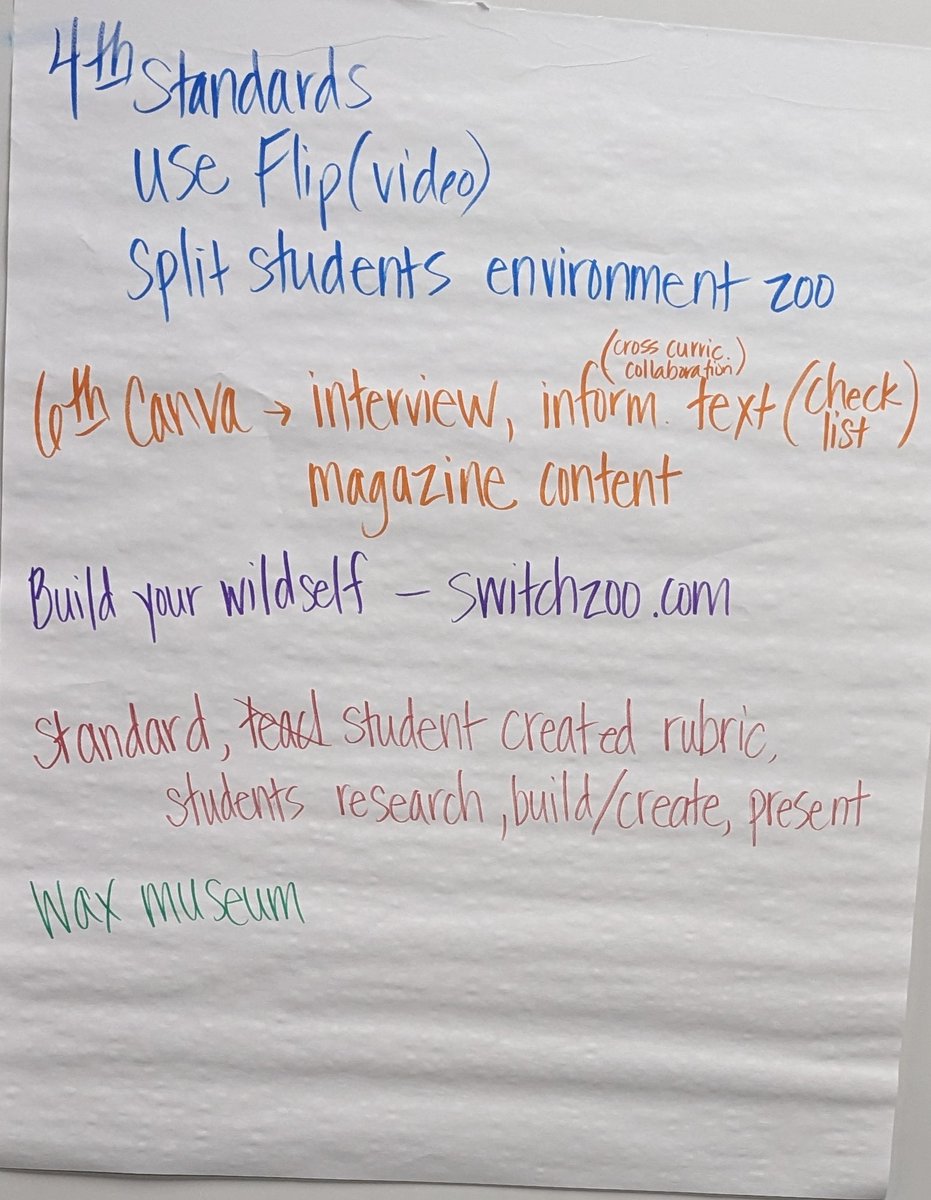 4th Standards
use Flip (video)
Split students environment zoo
(cross curric.
collaboration)
6th Canva → interview, inform. text (check
list)
magazine content
Build your wildself – switchzoo.com
Standard, student created rubric,
students research, build/create, present
Wax museum